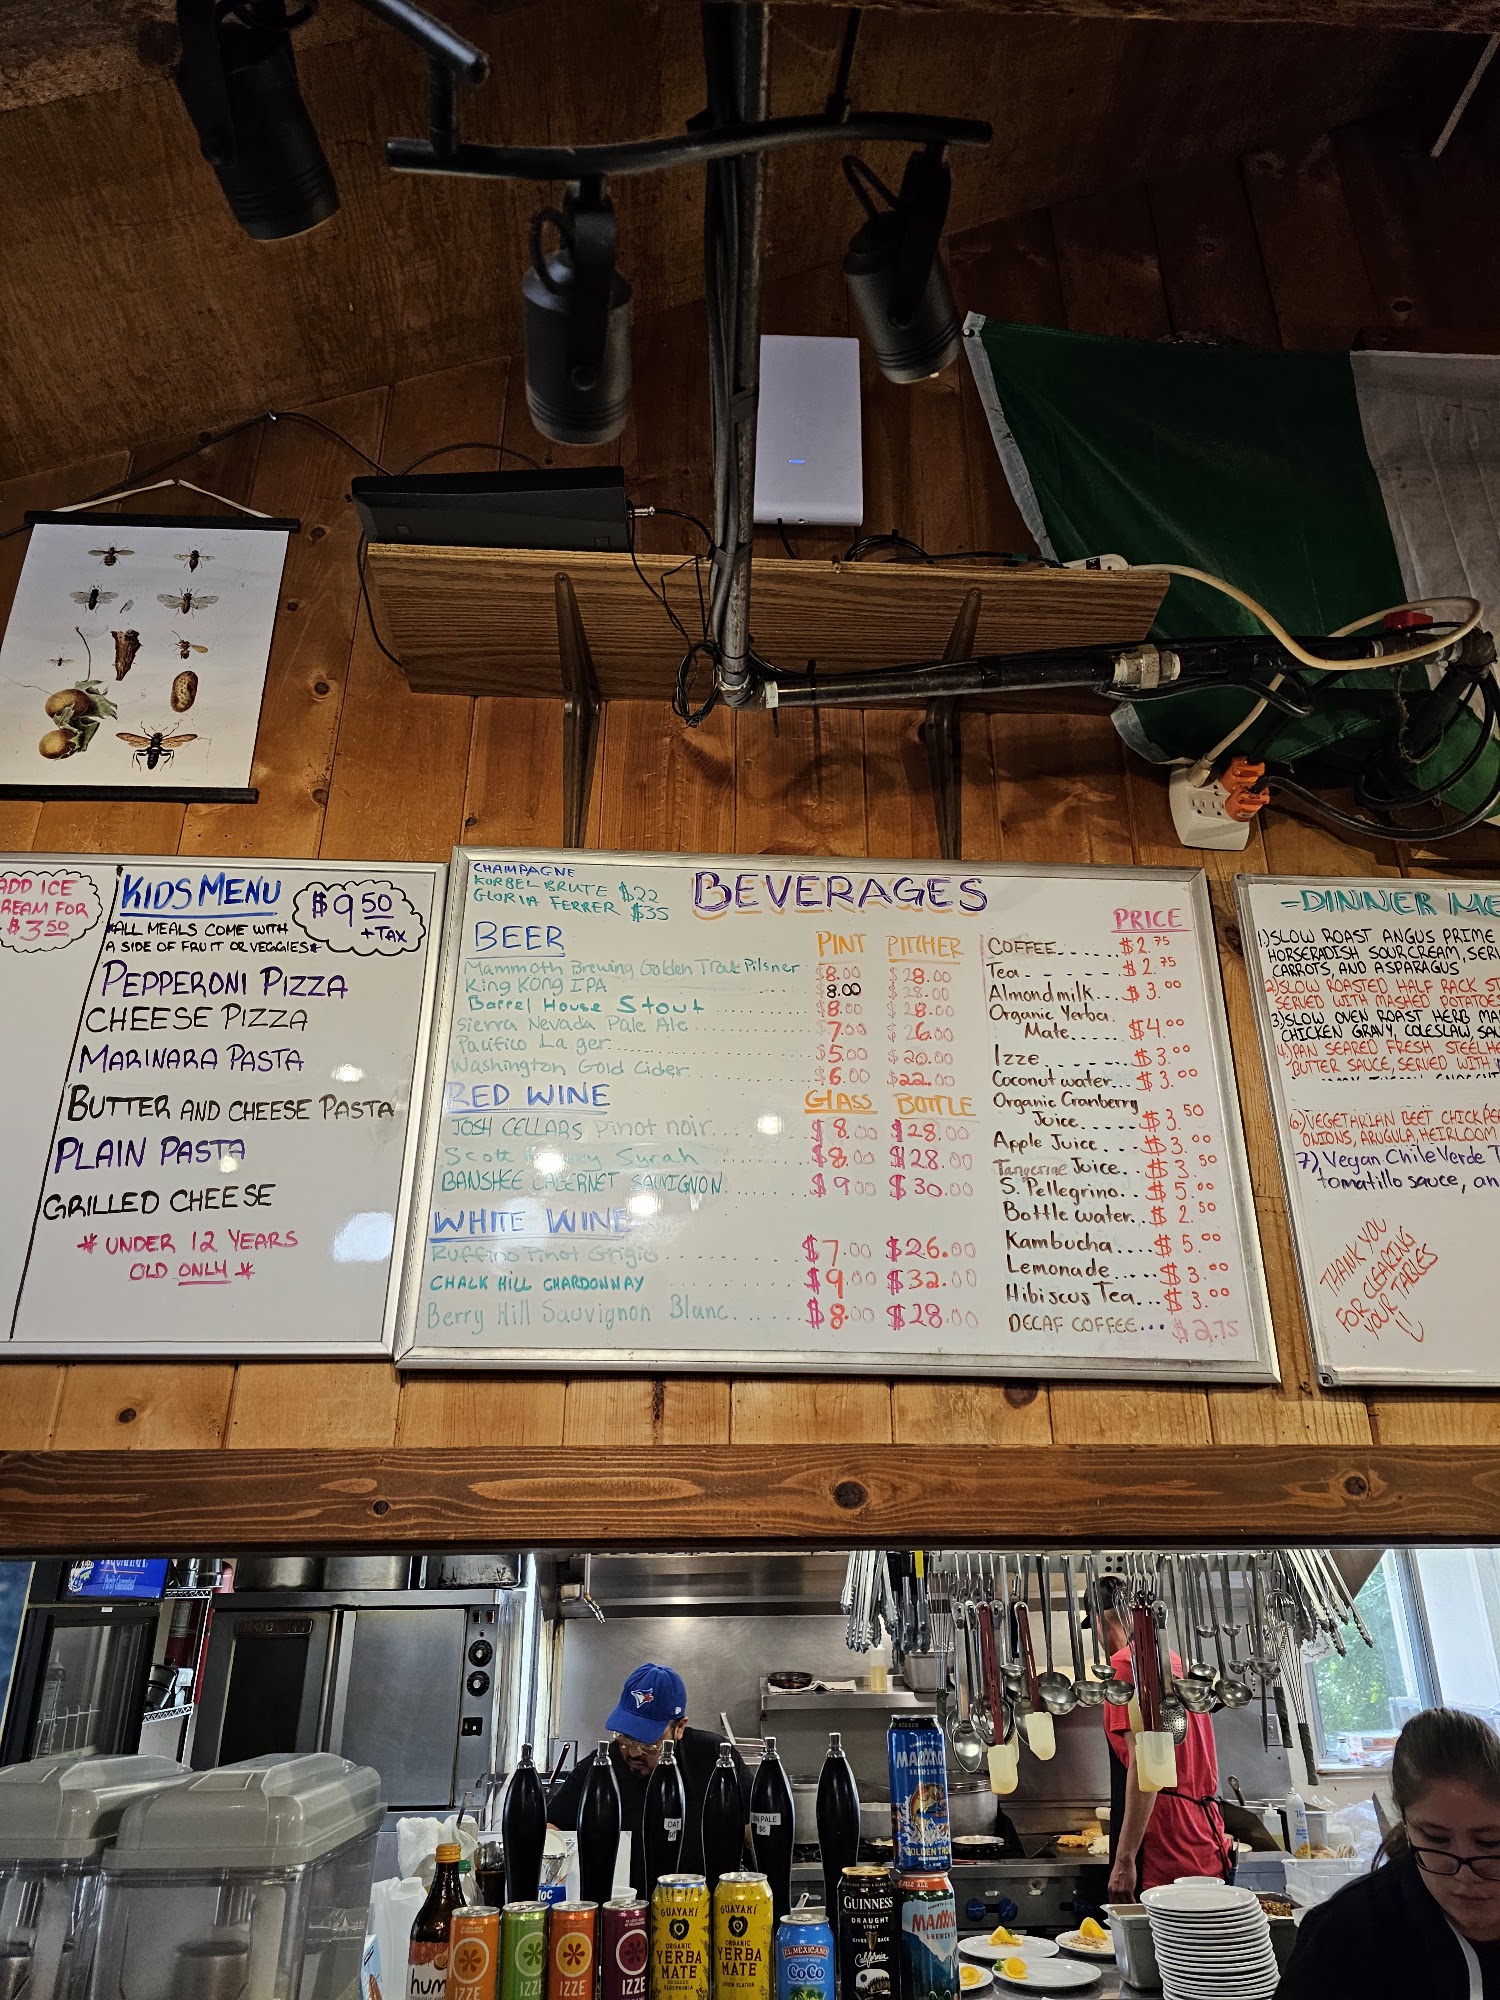 ADD ICE
REAM FOR
$3.50
KIDS MENU
$9.50
+TAX
*ALL MEALS COME WITH
A SIDE OF FRUIT OR VEGGIES*
PEPPERONI PIZZA
CHEESE PIZZA
MARINARA PASTA
BUTTER AND CHEESE PASTA
PLAIN PASTA
GRILLED CHEESE
* UNDER 12 YEARS
OLD ONLY *
CHAMPAGNE
KORBEL BRUTE $22
GLORIA FERRER $35
BEVERAGES
BEER PINT PITCHER
Mammoth Brewing Golden Trout Pilsner $8.00 $28.00
King Kong IPA 8.00 $28.00
Barrel House Stout $8.00 $28.00
Sierra Nevada Pale Ale $7.00 $26.00
Pacifico Lager $5.00 $20.00
Washington Gold Cider $6.00 $22.00
RED WINE GLASS BOTTLE
JOSH CELLARS Pinot noir $8.00 $28.00
Scott Syrah $8.00 $28.00
BANSHEE CABERNET SAUVIGNON $9.00 $30.00
WHITE WINE
Ruffino Pinot Grigio $7.00 $26.00
CHALK HILL CHARDONNAY $9.00 $32.00
Berry Hill Sauvignon Blanc $8.00 $28.00
PRICE
COFFEE $2.75
Tea $2.75
Almondmilk $3.00
Organic Yerba
Mate $4.00
Izze $3.00
Coconut water $3.00
Organic Cranberry
Juice $3.50
Apple Juice $3.00
Tangerine Juice $3.50
S. Pellegrino $5.00
Bottle water $2.50
Kambucha $5.00
Lemonade $3.00
Hibiscus Tea $3.00
DECAF COFFEE $2.75
-DINNER ME
1.)SLOW ROAST ANGUS PRIME
HORSERADISH SOUR CREAM, SER
CARROTS, AND ASPARAGUS
2)SLOW ROASTED HALF RACK ST
SERVED WITH MASHED POTATOES
3)SLOW OVEN ROAST HERB MA
CHICKEN GRAVY, COLESLAW,
4)PAN SEARED FRESH STEELHE
BUTTER SAUCE, SERVED WITH
6)VEGETARIAN BEET CHICKPE
ONIONS, ARUGULA, HEIRLOOM
7) Vegan Chile Verde T
tomatillo sauce, an
THANK YOU
FOR CLEARING
YOUR TABLES
OAT
PALE
$6
GOLDEN TROUT
hum
IZZE
IZZE
IZZE
IZZE
GUAYAKI
ORGANIC
YERBA
MATE
GUAYAKI
ORGANIC
YERBA
MATE
EL MEXICANO
COCO
GUINNESS
DRAUGHT
STOUT
California
PALE ALE